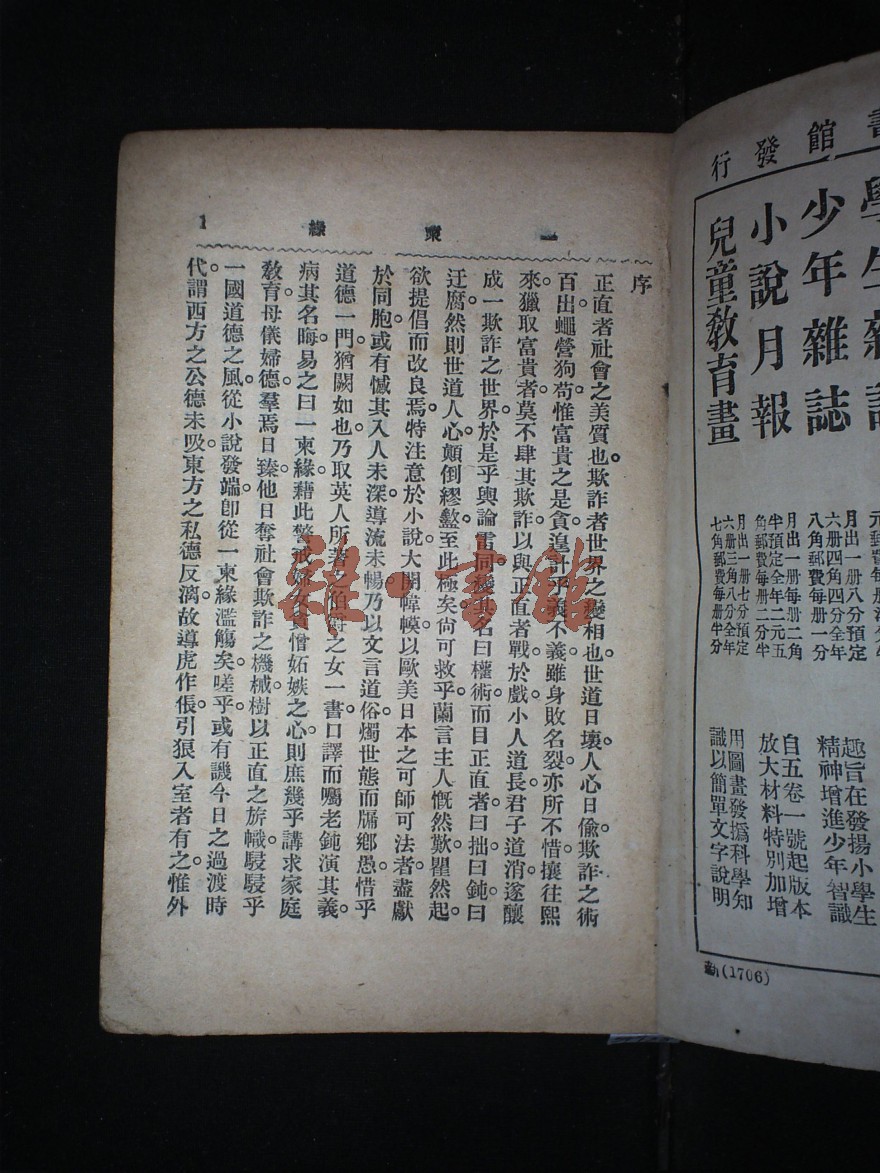 書館發行
學生雜誌
少年雜誌
月出一册八分預定
六册四角四分全年
八角郵費每册一分
趣旨在發揚小學生
精神增進少年智識
小說月報
月出一册每册二角
半預定全年二元五
角郵費每册二分半
自五卷一號起版本
放大材料特別加增
兒童敎育畫
月出一册七分預定
六册三角八分全年
七角郵費每册半分
用圖畫發撝科學知
識以簡單文字說明
勸(1706)
一束緣
1
序
正直者社會之美質也。欺詐者世界之變相也。世道日壞。人心日偸。欺詐之術
百出。蠅營狗苟。惟富貴之是貪。遑計乎義不義。雖身敗名裂。亦所不惜。攘往熙
來。獵取富貴者。莫不肆其欺詐。以與正直者戰。於戲。小人道長。君子道消。遂釀
成一欺詐之世界。於是乎輿論雷同。其名曰權術。而目正直者。曰拙。曰鈍。曰
迂腐。然則世道人心。顚倒繆盭。至此極矣。尙可救乎。蘭言主人慨然歎。瞿然起。
欲提倡而改良焉。特注意於小說。大開幃幙。以歐美日本之可師可法者。盡獻
於同胞。或有憾其入人未深。導流未暢。乃以文言道俗。燭世態而牖鄕愚。惜乎
道德一門。猶闕如也。乃取英人所著之伯爵之女一書。口譯而囑老鈍演其義。
病其名晦。易之曰一束緣。藉此警戒婦女貪憎妬嫉之心。則庶幾乎講求家庭
敎育。母儀婦德。羣焉日臻。他日奪社會欺詐之機械。樹以正直之旂幟。駸駸乎
一國道德之風。從小說發端。卽從一束緣濫觴矣。嗟乎。或有譏今日之過渡時
代。謂西方之公德未吸。東方之私德反漓。故導虎作倀。引狼入室者有之。惟外